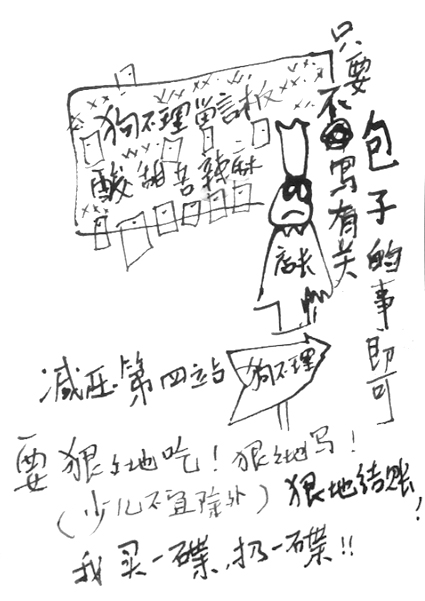 狗不理留言板
酸甜苦辣麻
只要不写有关
包子的事即可
店长
减压第四站
狗不理
要狠狠地吃！狠狠地写！
（少儿不宜除外）狠地结账！
我买一碟,扔一碟!!